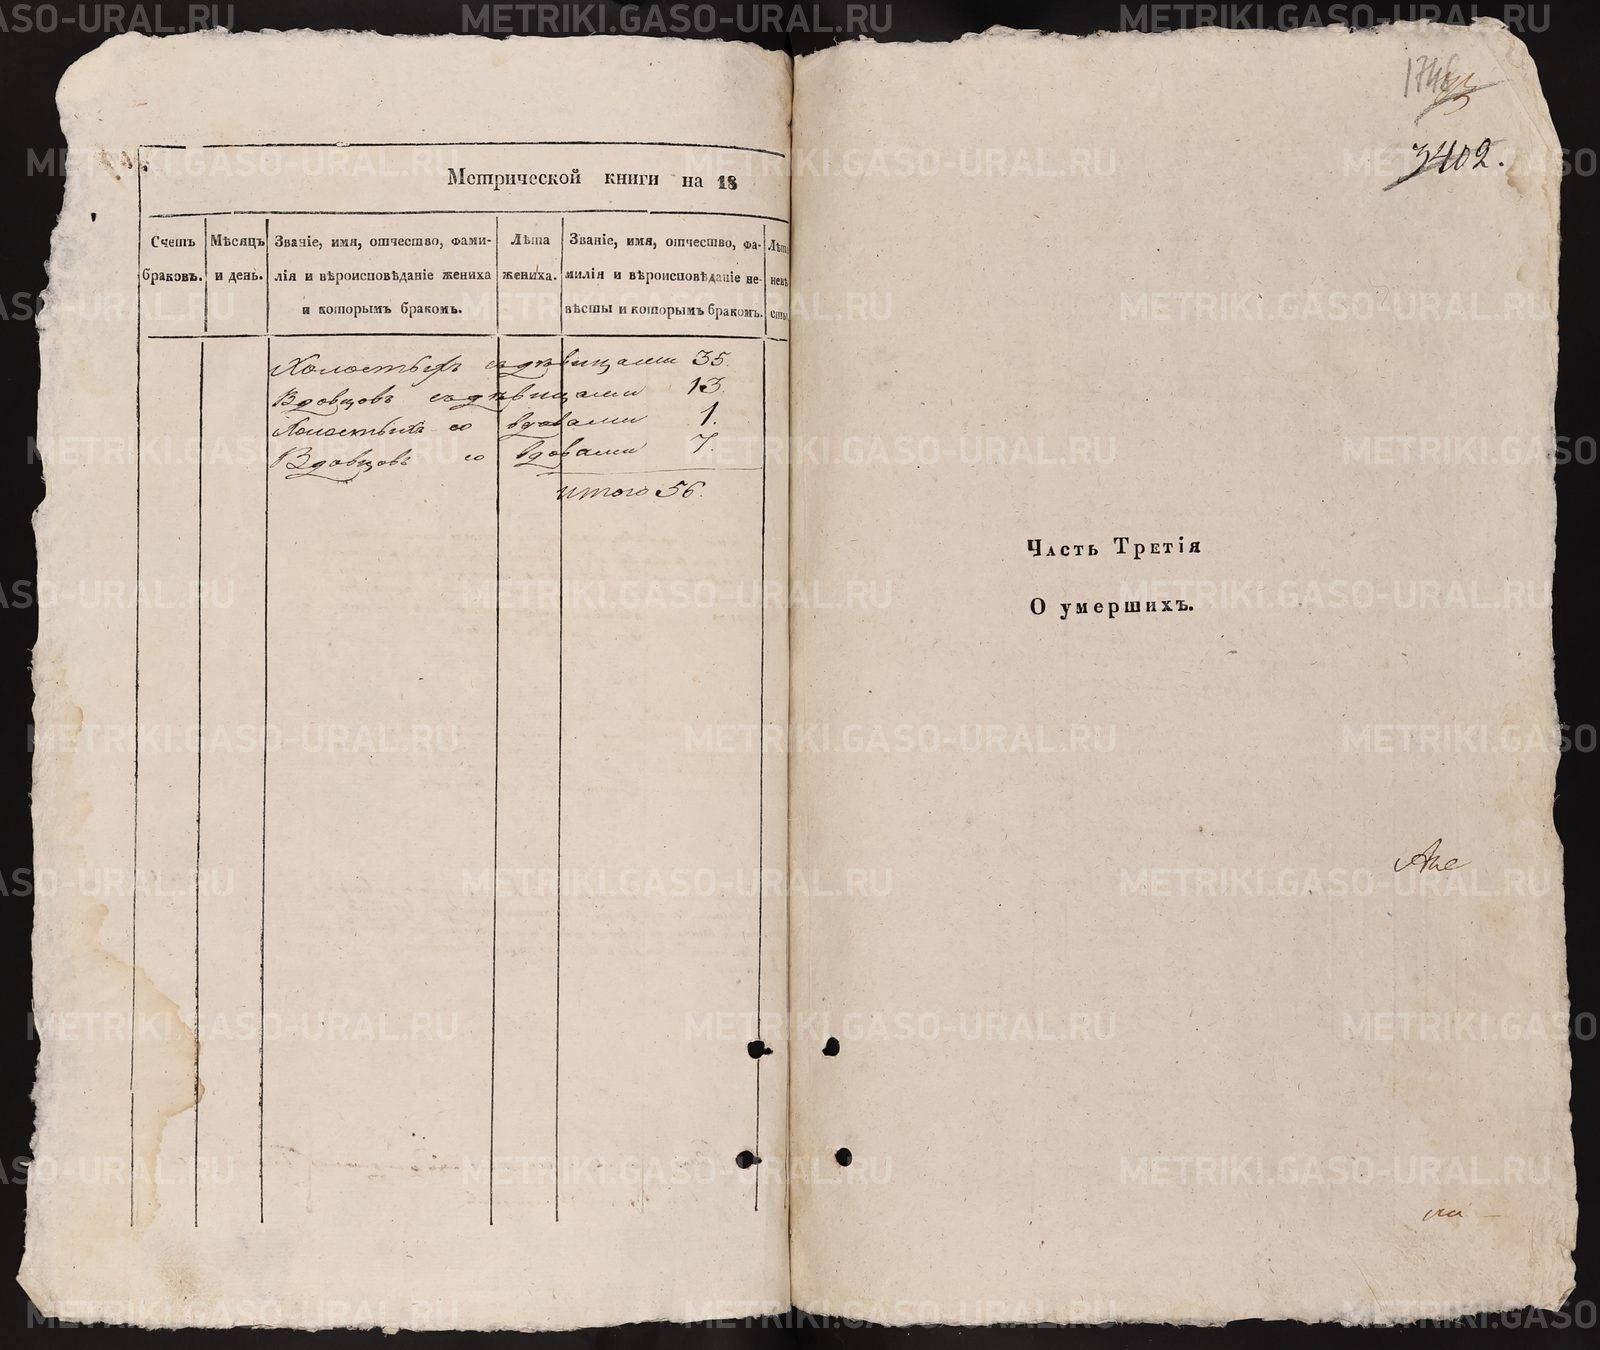 Метрической книги на 18
Счетъ браковъ.
Мѣсяцъ и день.
Званіе, имя, отчество, фами-
лія и вѣроисповѣданіе жениха
и которымъ бракомъ.
Лѣта жениха.
Званіе, имя, отчество, фа-
милія и вѣроисповѣданіе не-
вѣсты и которымъ бракомъ.
Лѣта невѣ сты
Холостыхъ съ дѣвицами 35.
Вдовцовъ съ дѣвицами 13.
Холостыхъ со вдовами 1.
Вдовцовъ со вдовами 7.
итого 56.
3402.
Часть Третія
О умершихъ.
METRIKI.GASO-URAL.RU